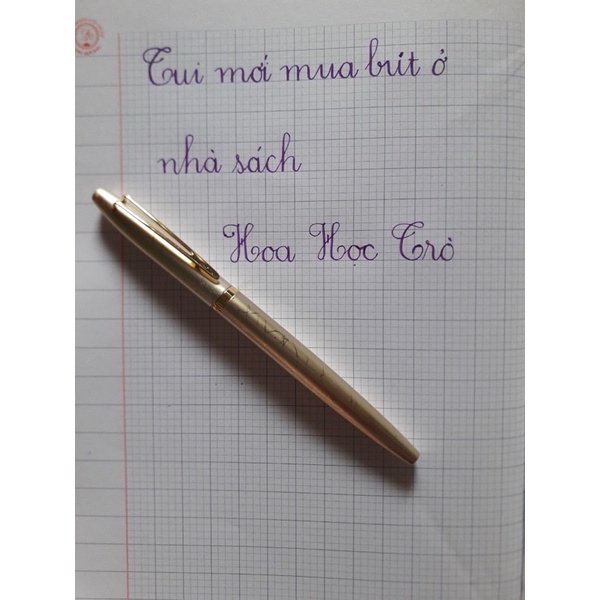 Tui mới mua bút ở
nhà sách
Hoa Học Trò